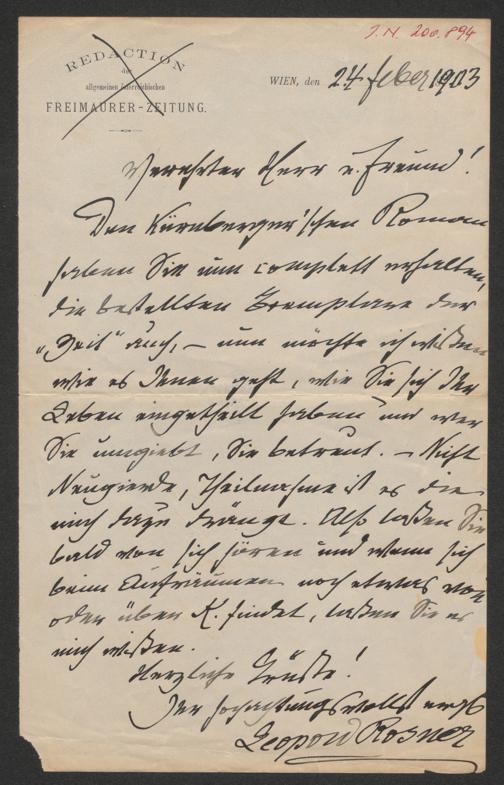 J. N. 200.894
REDACTION
der
allgemeinen österreichischen
FREIMAURER-ZEITUNG.
WIEN, den 24 Feber 1903
Verehrter Herr u. Freund!
Den Kürnberger'schen Roman
haben Sie nun complett erhalten,
die bestellten Exemplare der
„Zeit“ auch, – nun möchte ich wißen
wie es Ihnen geht, wie Sie sich Ihr
Leben eingetheilt haben und wer
Sie umgiebt, Sie betreut. – Nicht
Neugierde, Theilnahme ist es die
mich dazu drängt. Also laßen Sie
bald von sich hören und wenn sich
beim Aufräumen noch etwas von
oder über K. findet, laßen Sie es
mich wißen.
Herzliche Grüße!
Ihr hochachtungsvollst
Leopold Rosner